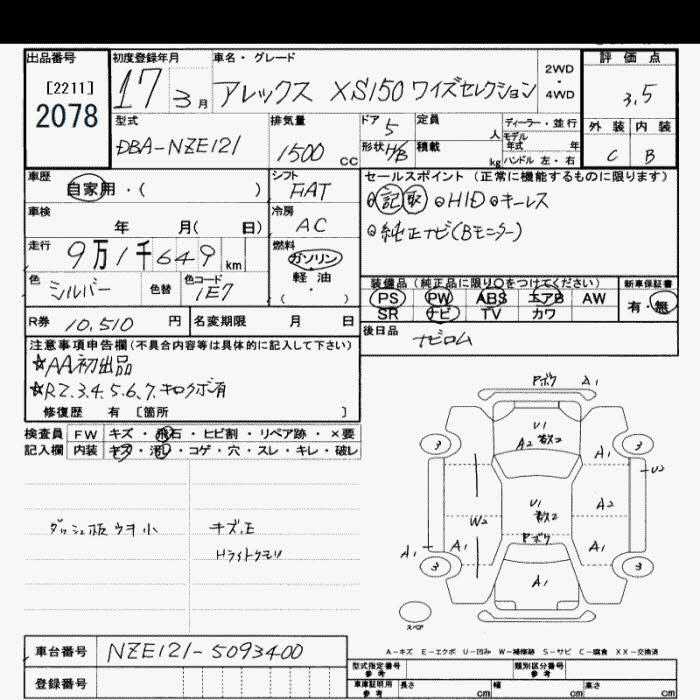 出品番号 初度登録年月 車名・グレード 2WD・4WD 評価点
[2211] 2078 17 3月 アレックス XS150 ワイズセレクション 3.5
型式 排気量 ドア 5 定員 人 ディーラー・並行 外装 内装
モデル年式 年
DBA-NZE121 1500cc 形状 H/B 積載 kg ハンドル 左・右 C B
車歴 シフト セールスポイント (正常に機能するものに限ります)
自家用・( ) FAT 記 取 HID キーレス
車検 冷房 純正ナビ(Bモニター)
年 月( 日) AC
走行 9万1千649km 燃料 ガソリン 軽油 ( ・ )
色 シルバー 色替 色コード 1E7
装備品 (純正品に限り〇をつけてください) 新車保証書
PS PW ABS エアB AW 有・無
SR ナビ TV カワ
R券 10,510円 名変期限 月 日 後日品 ナビロム
注意事項申告欄(不具合内容等は具体的に記入して下さい)
☆AA初出品
☆R2.3.4.5.6.7.キロクボ有
修復歴 有 [箇所 ]
検査員 FW キズ・飛石・ヒビ割・リペア跡・×要
記入欄 内装 キズ・汚レ・コゲ・穴・スレ・キレ・破レ
ダッシュ板ウキ小 キズ,E
Hライトクモリ
Pボウ A1
U1
A2 数2
3 3
A1 U2
U1 A2
数2
W2 Pボウ
A1 A1 A1
3 3
A1
スペア
A-キズ E-エクボ U-凹み W-補修跡 S-サビ C-腐食 XX-交換済
車台番号 NZE121-5093400
型式指定番号 参考 類別区分番号 参考
登録番号 車庫証明用 参考 長さ cm 幅 cm 高さ cm